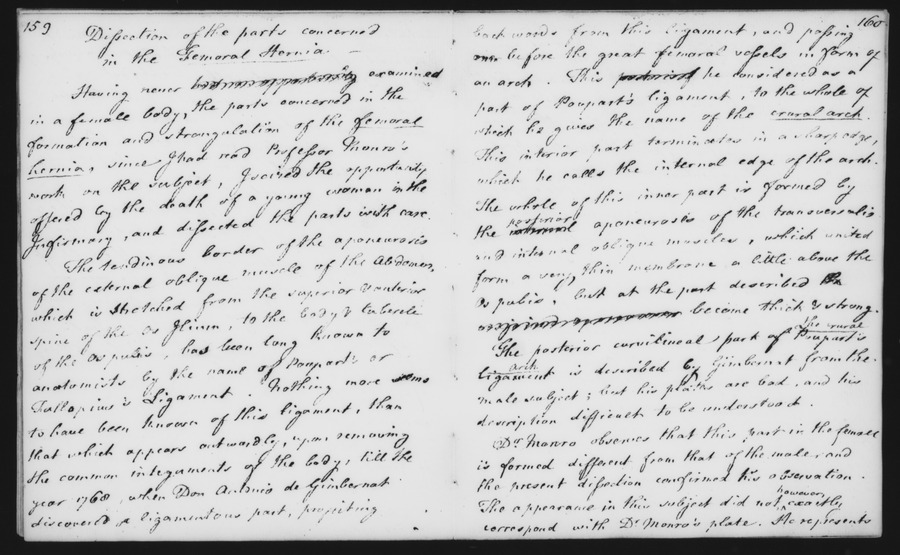 159
Dissection of the parts concerned
in the Femoral Hernia —
Having never examined
in a female body, the parts concerned in the
formation and strangulation of the femoral
hernia, since I had read Professor Monro's
work on the subject, I seized the opportunity
offered by the death of a young woman in the
Infirmary, and dissected the parts with care.
The tendinous border of the aponeurosis
of the external oblique muscle of the Abdomen,
which is stretched from the superior & anterior
spine of the Os Ilium, to the body & tubercle
of the Os pubis, has been long known to
anatomists by the name of Poupart's or
Fallopius's Ligament. Nothing more seems
to have been known of this ligament, than
that which appears outwardly, upon removing
the common integuments of the body, till the
year 1768, when Don Antonio de Gimbernat
discovered a ligamentous part, projecting
160
backwards from this ligament, and passing
before the great femoral vessels in form of
an arch. This he considered as a
part of Poupart's ligament, to the whole of
which he gives the name of the crural arch.
This interior part terminates in a sharp edge,
which he calls the internal edge of the arch.
The whole of this inner part is formed by
the posterior aponeurosis of the transversalis
and internal oblique muscles, which united
form a very thin membrane a little above the
Os pubis, but at the part described
become thick & strong.
The posterior curvilineal part of Poupart's the crural
ligament arch is described by Gimbernat from the
male subject; but his plates are bad, and his
description difficult to be understood.
Dr Monro observes that this part in the female
is formed different from that of the male and
the present dissection confirmed his observation.
The appearance in this subject did not however, exactly
correspond with Dr Monro's plate. He represents